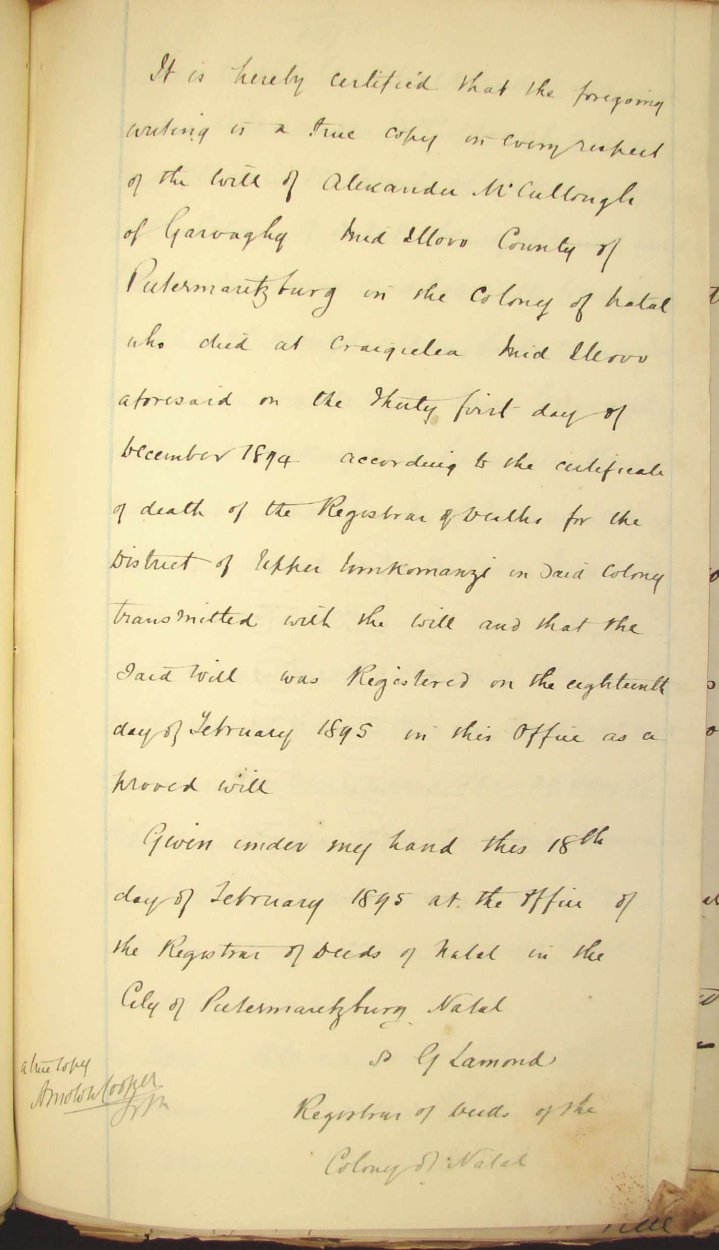 It is hereby certified that the foregoing
writing is a true copy in every respect
of the will of Alexander McCullough
of Garvaghy Mid Illovo County of
Pietermaritzburg in the Colony of Natal
who died at Craigielea Mid Illovo
aforesaid on the Thirty first day of
December 1894 according to the certificate
of death of the Registrar of Deaths for the
District of Upper Umkomanzi in said Colony
transmitted with the will and that the
said will was Registered on the eighteenth
day of February 1895 in this Office as a
proved will
Given under my hand this 18th
day of February 1895 at the Office of
the Registrar of Deeds of Natal in the
City of Pietermaritzburg Natal
G Lamond
Registrar of Deeds of the
Colony of Natal
a true copy
Cooper